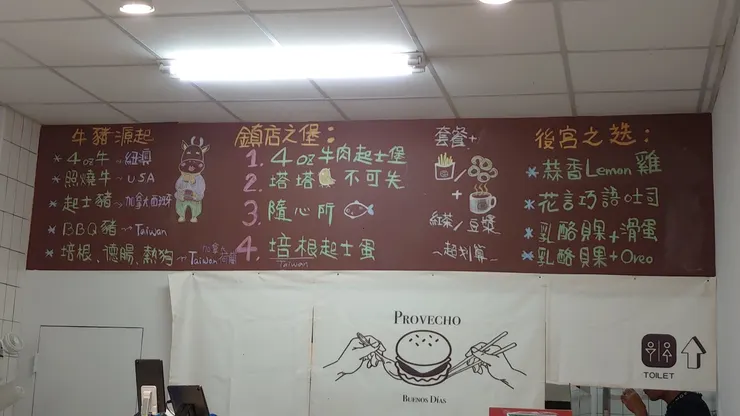 牛豬源起
* 4oz牛→紐澳
* 照燒牛→USA
* 起士豬→加拿大西班牙
* BBQ豬→Taiwan
* 培根、德腸、熱狗→Taiwan
鎮店之堡:
1. 4oz牛肉起士堡
2. 塔塔 不可失
3. 隨心所
4. 培根起士蛋
Taiwan
套餐+
+
紅茶/豆漿
~超划算~
後宮之选:
* 蒜香Lemon雞
* 花言巧語吐司
* 乳酪貝果+滑蛋
* 乳酪貝果+Oreo
PROVECHO
BUENOS DÍAS
TOILET